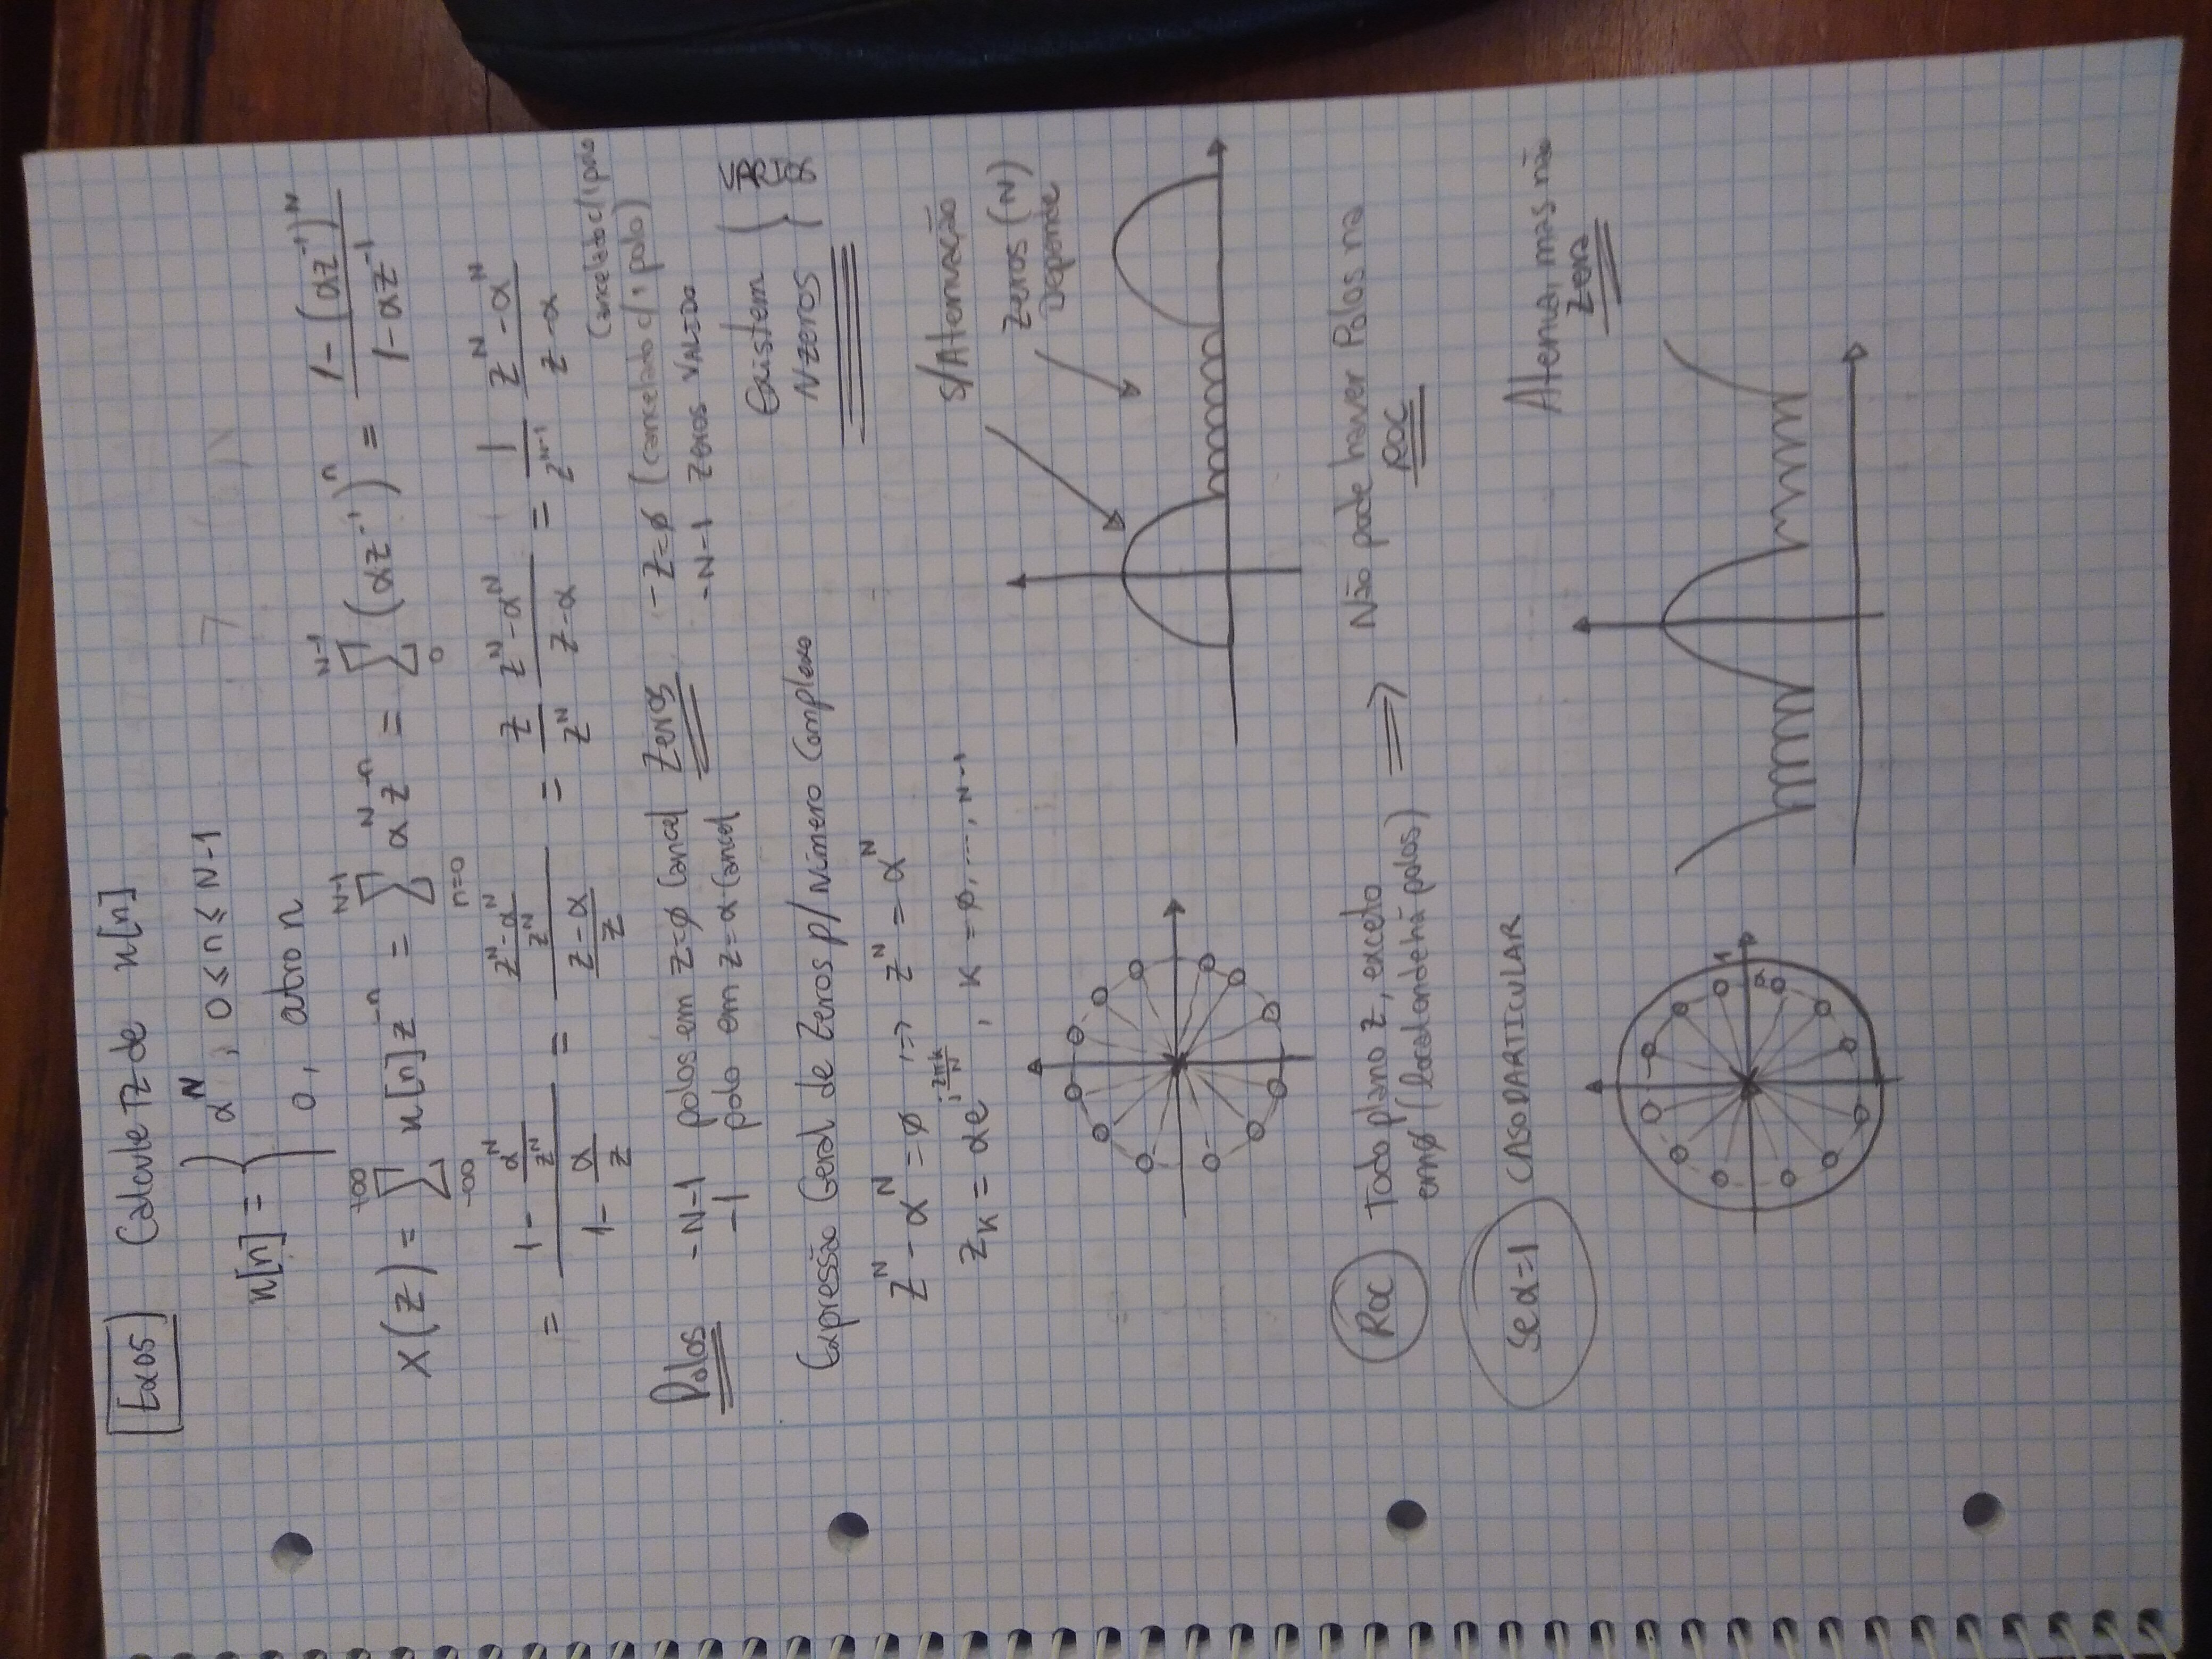 Ex05 Calcule TZ de x[n]
x[n] = { α^N, 0 ≤ n ≤ N-1
0, otro n
X(z) = Σ_{-∞}^{+∞} x[n]z^{-n} = Σ_{n=0}^{N-1} α^N z^{-n} = Σ_{0}^{N-1} (αz^{-1})^n = (1-(αz^{-1})^N)/(1-αz^{-1})
= (1 - α^N/z^N)/(1 - α/z) = ((z^N-α^N)/z^N)/((z-α)/z) = z/z^N (z^N-α^N)/(z-α) = 1/z^{N-1} (z^N-α^N)/(z-α)
Cancelado c/1 polo
Polos -N-1 polos em z=∅ Cancel
-1 polo em z=α Cancel
Zeros -z=∅ (cancelado c/1 polo)
-N-1 Zeros VALIDO
Existem
N zeros
Expressão Geral de Zeros p/ Número Complexo
z^N - α^N = ∅ => z^N = α^N
z_k = αe^{j2πk/N}, k = ∅, ..., N-1
s/Atenuação
Zeros (N)
Depende
ROC Todo plano z, exceto
em ∅ (local onde há polos) => Não pode haver Polos na
ROC
se α=1 CASO PARTICULAR
Atenua, mas não
Zera
1
a